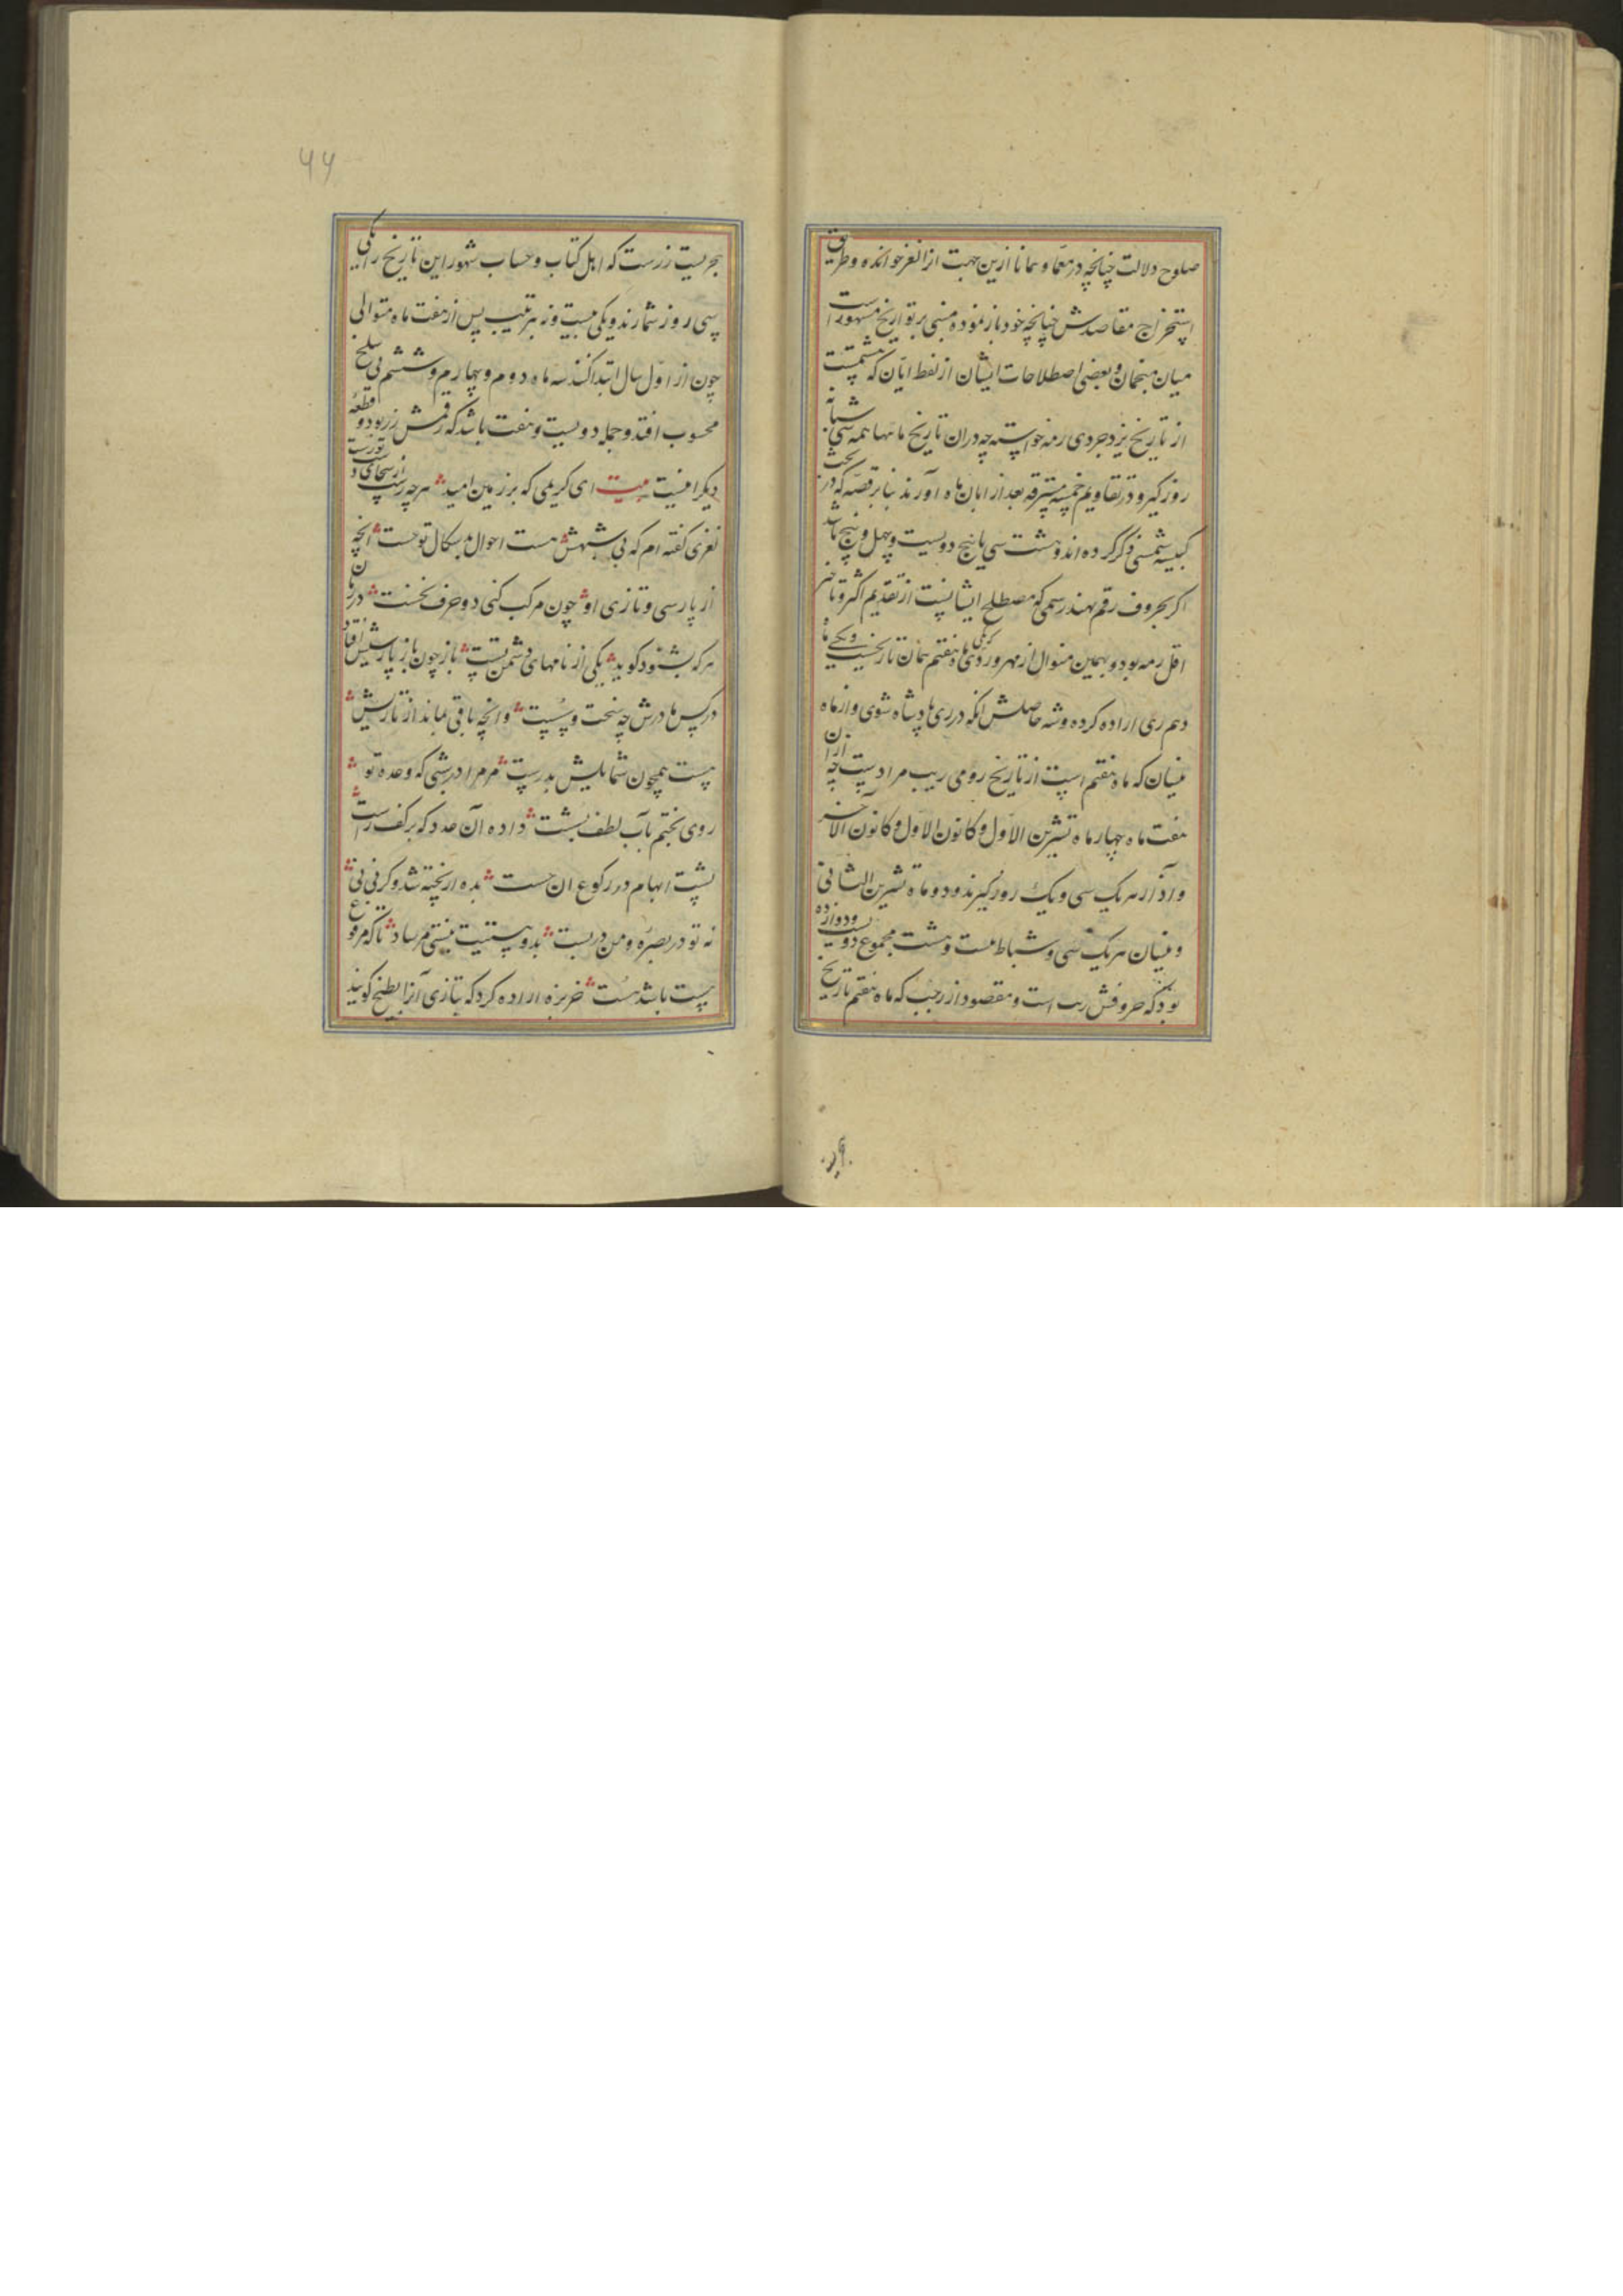 صلوح دلالت چنانچه در معما و همانا ازین جهت آنرا لغز خوانده و طریق
استخراج مقاصدش چنانچه خود باز نموده مبنی بر تواریخ مشهور است
میان منجمان و بعضی اصطلاحات ایشان از لفظ ابان که هشتمست
از تاریخ یزدجردی رمه خواسته چه دران تاریخ ماهها همه سی شبانه
روز گیرند و در تقاویم خمسه مسترقه بعد از ابان ماه آورند بنابر قصه که در بحث
کبیسه شمسی ذکر کرده اند و هشت سی با پنج دویست و چهل و پنج باشد
اگر بحروف رقم نهند رسمی که مصطلح ایشانست از تقدیم اکثر و تاخیر
اقل رمه بود و بهمین منوال از مهر و روزی که ماه هفتم همان تاریخست و یکی ماه
دهم ری اراده کرده و شه حاصلش انکه در ری پادشاه شوی و از ماه
نیسان که ماه هفتم است از تاریخ رومی ریب مرادست چه ازان
هفت ماه چهار ماه تشرین الاول و کانون الاول و کانون الآخر
و آذار هر یک سی و یک روز گیرند و دو ماه تشرین الثانی
و نیسان هر یک سی و شباط بیست و هشت مجموع دویست و دوازده
بود که حروفش ریب است و مقصود از رجب که ماه هفتم تاریخ
هجریست زرست که اهل کتاب و حساب شهور این تاریخ را یکی
سی روز شمارند و یکی بیست و نه بترتیب پس از هفت ماه متوالی
چون از اول سال ابتدا کنند سه ماه دوم و چهارم و ششم بی سلخ
محسوب افتد و جمله دویست و هفت باشد که رقمش زر بود و قطعه
دیگر اینست بیت ای کریمی که بر زمین امید هرچه رست از سخای تو رست
لغزی گفته ام که بی شبهش هست احوال بدسکال تو جست انچه
از پارسی و تازی او چون مرکب کنی دو حرف نخست در زمان
هرکه بشنود گوید یکی از نامهای دشمن تست باز چون باز پارسیش افتد
در پس ما درش چه سخت و چه سست وانچه باقی بماند از تازیش
هست همچون شمایلش بدرست مر مرا در شبی که وعده تو
روی بختم بآب لطف بشست داده آن عدد که بر کف راست
پشت ابهام در رکوع ان جست بده ار پخته شد و گر نی نی
نه تو در بصره و من در بست بدو بیتیت نیستی مرساد تا که مرفوع
بیست باشد شست خربزه اراده کرد که بتازی آنرا بطیخ گویند